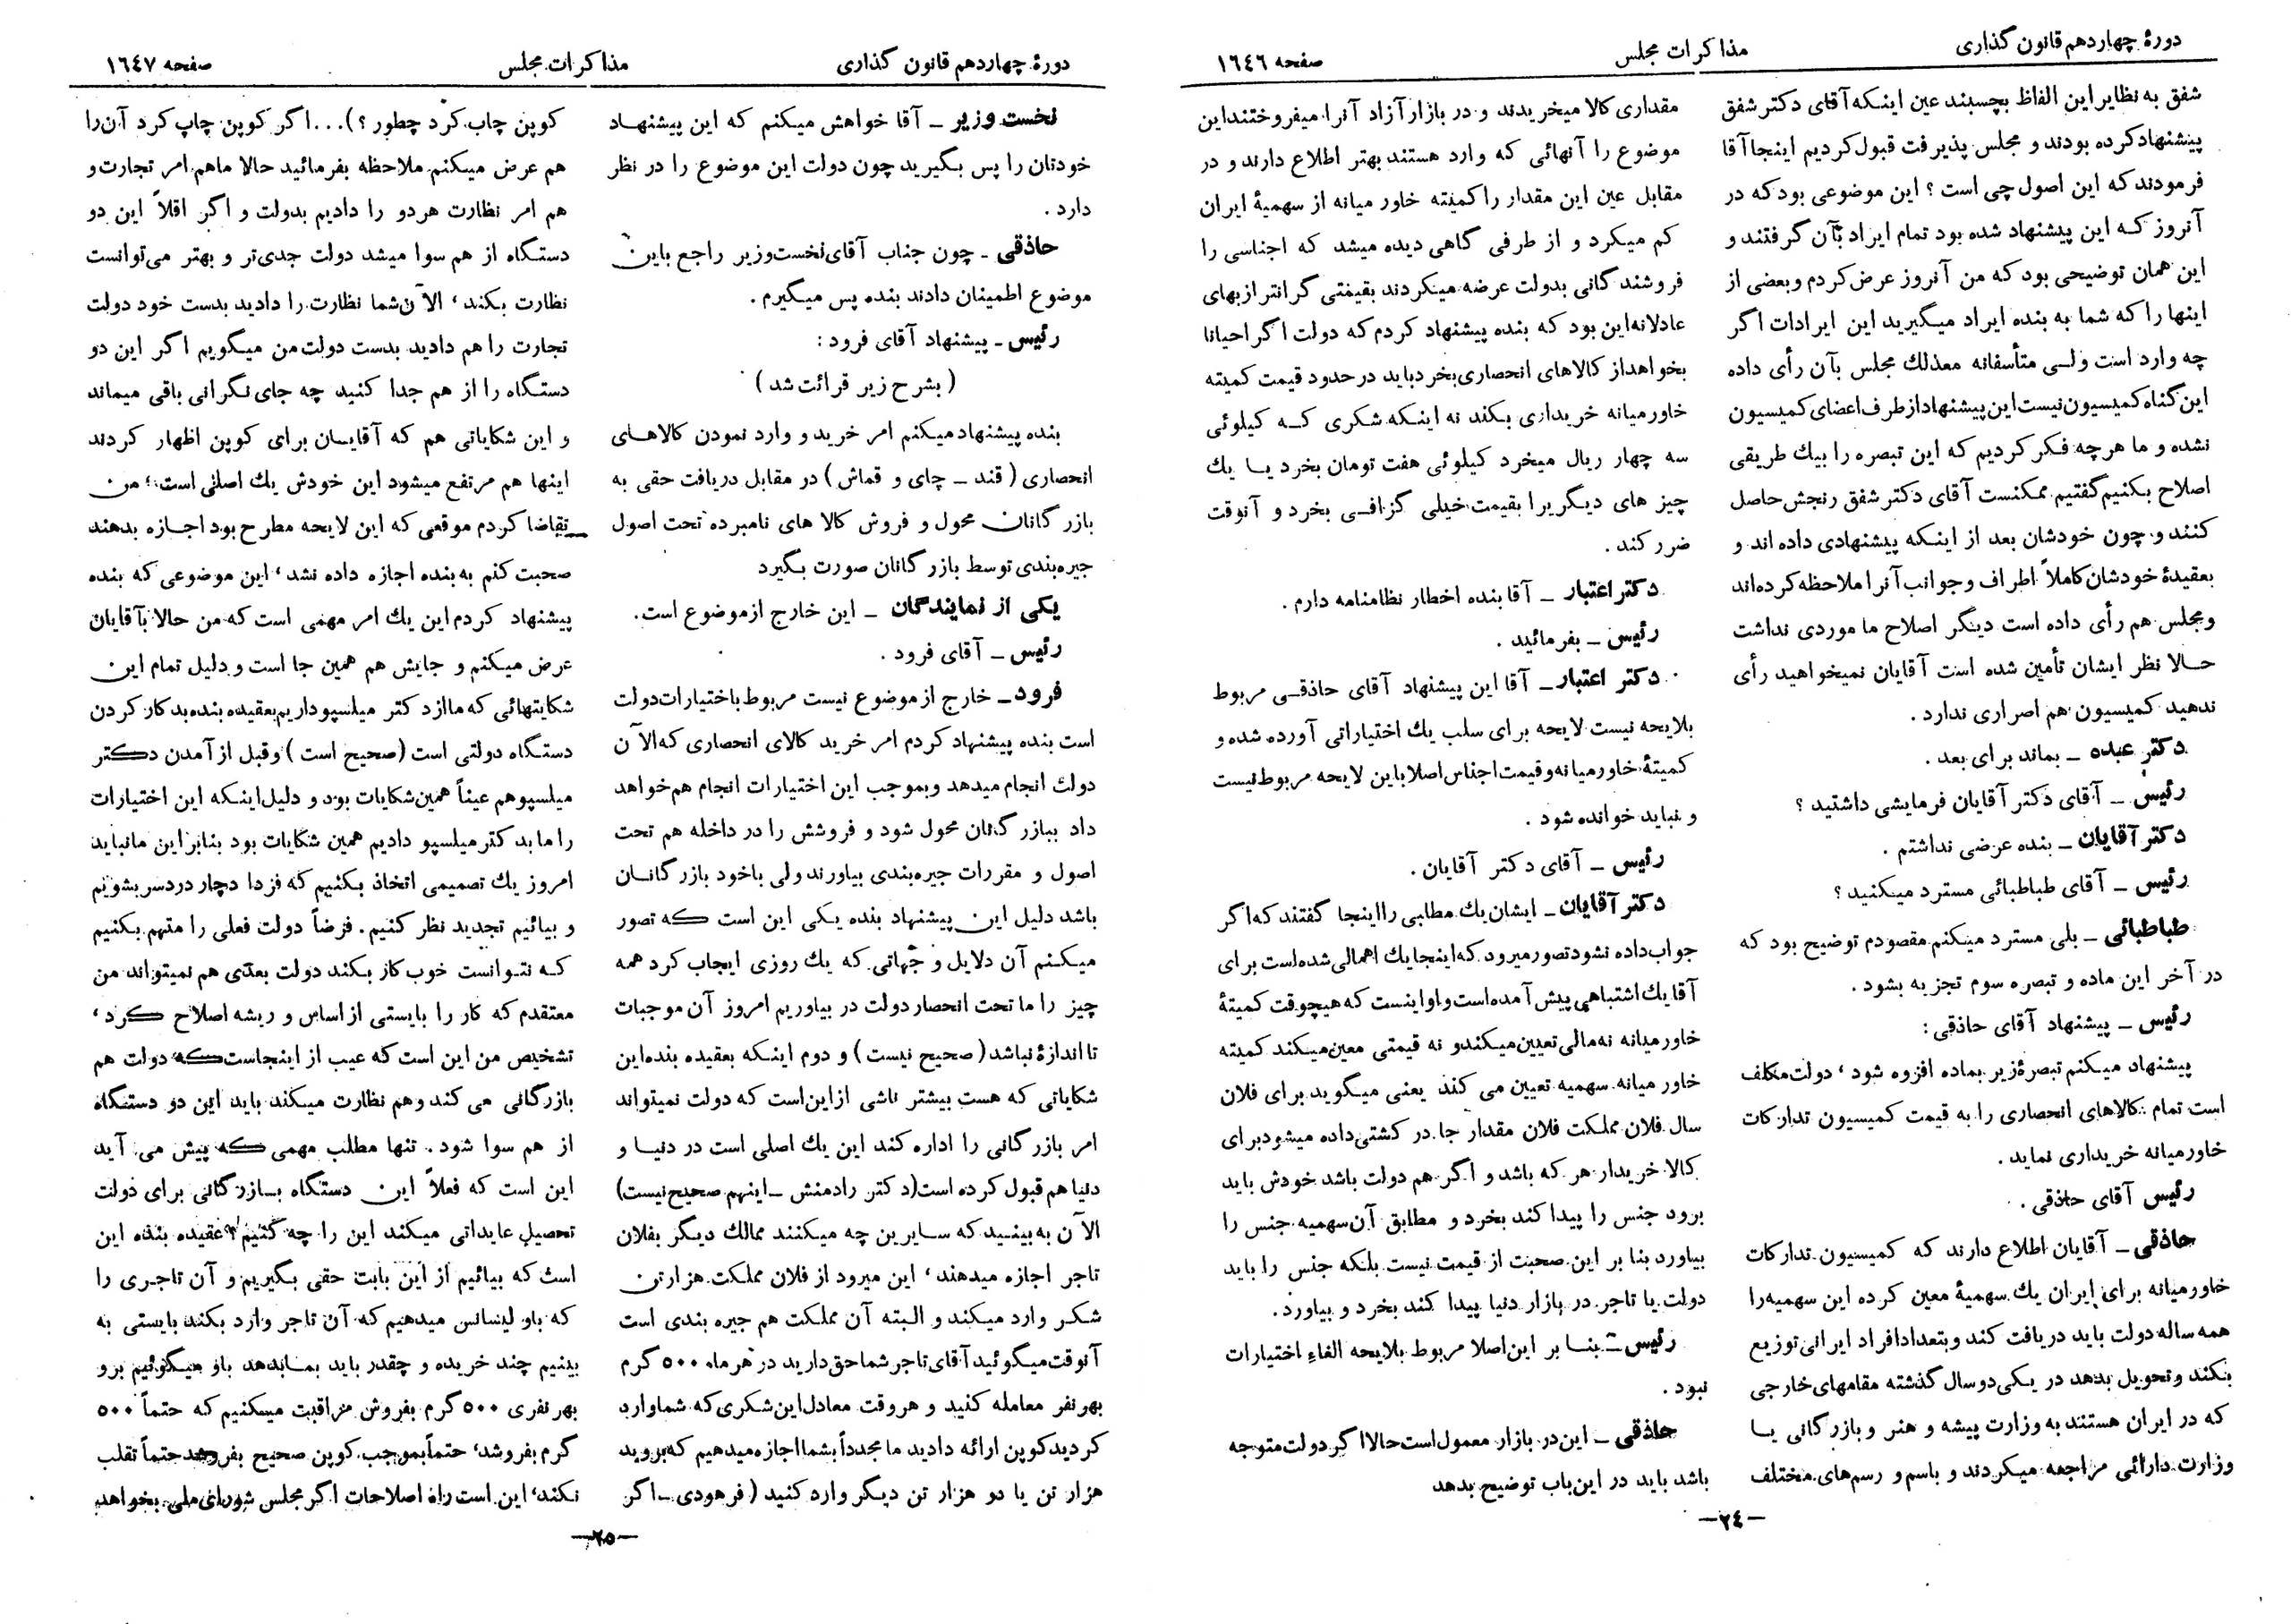 دورهٔ چهاردهم قانون گذاری
مذاکرات مجلس
صفحه ١٦٤٦
شفق به نظایر این الفاظ بچسبند عین اینکه آقای دکتر شفق
پیشنهاد کرده بودند و مجلس پذیرفت قبول کردیم اینجا آقا
فرمودند که این اصول چی است ؟ این موضوعی بود که در
آنروز که این پیشنهاد شده بود تمام ایراد بآن گرفتند و
این همان توضیحی بود که من آنروز عرض کردم و بعضی از
اینها را که شما به بنده ایراد میگیرید این ایرادات اگر
چه وارد است ولی متأسفانه معذلك مجلس بآن رأی داده
این گناه کمیسیون نیست این پیشنهاد از طرف اعضای کمیسیون
نشده و ما هرچه فکر کردیم که این تبصره را بیك طریقی
اصلاح بکنیم گفتیم ممکنست آقای دکتر شفق رنجش حاصل
کنند و چون خودشان بعد از اینکه پیشنهادی داده اند و
بعقیدهٔ خودشان کاملاً اطراف و جوانب آنرا ملاحظه کرده‌اند
و مجلس هم رأی داده است دیگر اصلاح ما موردی نداشت
حالا نظر ایشان تأمین شده است آقایان نمیخواهید رأی
ندهید کمیسیون هم اصراری ندارد .
دکتر عبده ـ بماند برای بعد .
رئیس ـ آقای دکتر آقایان فرمایشی داشتید ؟
دکتر آقایان ـ بنده عرضی نداشتم .
رئیس ـ آقای طباطبائی مسترد میکنید ؟
طباطبائی ـ بلی مسترد میکنم مقصودم توضیح بود که
در آخر این ماده و تبصره سوم تجزیه بشود .
رئیس ـ پیشنهاد آقای حاذقی :
پیشنهاد میکنم تبصرهٔ زیر بماده افزوه شود ، دولت مکلف
است تمام کالاهای انحصاری را به قیمت کمیسیون تدارکات
خاورمیانه خریداری نماید .
رئیس آقای حاذقی .
حاذقی ـ آقایان اطلاع دارند که کمیسیون تدارکات
خاورمیانه برای ایران یك سهمیهٔ معین کرده این سهمیه را
همه ساله دولت باید دریافت کند و بتعداد افراد ایرانی توزیع
بکند و تحویل بدهد در یکی دو سال گذشته مقامهای خارجی
که در ایران هستند به وزارت پیشه و هنر و بازرگانی یا
وزارت دارائی مراجعه میکردند و باسم و رسم‌های مختلف
مقداری کالا میخریدند و در بازار آزاد آنرا میفروختند این
موضوع را آنهائی که وارد هستند بهتر اطلاع دارند و در
مقابل عین این مقدار را کمیته خاور میانه از سهمیهٔ ایران
کم میکرد و از طرفی گاهی دیده میشد که اجناسی را
فروشندگانی بدولت عرضه میکردند بقیمتی گرانتر از بهای
عادلانه این بود که بنده پیشنهاد کردم که دولت اگر احیانا
بخواهد از کالاهای انحصاری بخرد باید در حدود قیمت کمیته
خاورمیانه خریداری بکند نه اینکه شکری که کیلوئی
سه چهار ریال میخرد کیلوئی هفت تومان بخرد یا یك
چیز های دیگریرا بقیمت خیلی گزافی بخرد و آنوقت
ضرر کند .
دکتر اعتبار ـ آقا بنده اخطار نظامنامه دارم .
رئیس ـ بفرمائید .
دکتر اعتبار ـ آقا این پیشنهاد آقای حاذقی مربوط
بلایحه نیست لایحه برای سلب یك اختیاراتی آورده شده و
کمیتهٔ خاورمیانه و قیمت اجناس اصلا باین لایحه مربوط نیست
و نباید خوانده شود .
رئیس ـ آقای دکتر آقایان .
دکتر آقایان ـ ایشان یك مطالبی را اینجا گفتند که اگر
جواب داده نشود تصور میرود که اینجا یك اهمالی شده است برای
آقا یك اشتباهی پیش آمده است و او اینست که هیچوقت کمیتهٔ
خاورمیانه نه مالی تعیین میکند و نه قیمتی معین میکند کمیته
خاور میانه سهمیه تعیین می کند یعنی میگوید برای فلان
سال فلان مملکت فلان مقدار جا در کشتی داده میشود برای
کالا خریدار هر که باشد و اگر هم دولت باشد خودش باید
برود جنس را پیدا کند بخرد و مطابق آن سهمیه جنس را
بیاورد بنا بر این صحبت از قیمت نیست بلکه جنس را باید
دولت یا تاجر در بازار دنیا پیدا کند بخرد و بیاورد .
رئیس ـ بنا بر این اصلا مربوط بلایحه الغاء اختیارات
نبود .
حاذقی ـ این در بازار معمول است حالا اگر دولت متوجه
باشد باید در این باب توضیح بدهد
ـ٢٤ـ
دورهٔ چهاردهم قانون گذاری
مذاکرات مجلس
صفحه ١٦٤٧
نخست وزیر ـ آقا خواهش میکنم که این پیشنهاد
خودتان را پس بگیرید چون دولت این موضوع را در نظر
دارد .
حاذقی ـ چون جناب آقای نخست‌وزیر راجع باین
موضوع اطمینان دادند بنده پس میگیرم .
رئیس ـ پیشنهاد آقای فرود :
( بشرح زیر قرائت شد )
بنده پیشنهاد میکنم امر خرید و وارد نمودن کالاهای
انحصاری ( قند ـ چای و قماش ) در مقابل دریافت حقی به
بازرگانان محول و فروش کالا های نامبرده تحت اصول
جیره‌بندی توسط بازرگانان صورت بگیرد
یکی از نمایندگان ـ این خارج از موضوع است.
رئیس ـ آقای فرود .
فرود ـ خارج از موضوع نیست مربوط باختیارات دولت
است بنده پیشنهاد کردم امر خرید کالای انحصاری که الآن
دولت انجام میدهد و بموجب این اختیارات انجام هم خواهد
داد ببازرگانان محول شود و فروشش را در داخله هم تحت
اصول و مقررات جیره‌بندی بیاورند ولی با خود بازرگانان
باشد دلیل این پیشنهاد بنده یکی این است که تصور
میکنم آن دلایل و جهاتی که یك روزی ایجاب کرد همه
چیز را ما تحت انحصار دولت در بیاوریم امروز آن موجبات
تا اندازهٔ نباشد ( صحیح نیست ) و دوم اینکه بعقیده بنده این
شکایاتی که هست بیشتر ناشی از این است که دولت نمیتواند
امر بازرگانی را اداره کند این یك اصلی است در دنیا و
دنیا هم قبول کرده است (دکتر رادمنش ـ اینهم صحیح نیست)
الآن به بینید که سایرین چه میکنند ممالك دیگر بفلان
تاجر اجازه میدهند ، این میرود از فلان مملکت هزار تن
شکر وارد میکند و البته آن مملکت هم جیره بندی است
آنوقت میگوئید آقای تاجر شما حق دارید در هر ماه ٥٠٠ گرم
بهر نفر معامله کنید و هر وقت معادل این شکری که شما وارد
کردید کوپن ارائه دادید ما مجدداً بشما اجازه میدهیم که بروید
هزار تن یا دو هزار تن دیگر وارد کنید ( فرهودی ـ اگر
کوپن چاپ کرد چطور ؟ )...اگر کوپن چاپ کرد آن را
هم عرض میکنم ملاحظه بفرمائید حالا ما هم امر تجارت و
هم امر نظارت هر دو را دادیم بدولت و اگر اقلاً این دو
دستگاه از هم سوا میشد دولت جدی‌تر و بهتر می‌توانست
نظارت بکند ، الآن شما نظارت را دادید بدست خود دولت
تجارت را هم دادید بدست دولت من میگویم اگر این دو
دستگاه را از هم جدا کنید چه جای نگرانی باقی میماند
و این شکایاتی هم که آقایان برای کوپن اظهار کردند
اینها هم مرتفع میشود این خودش یك اصلی است ، من
تقاضا کردم موقعی که این لایحه مطرح بود اجازه بدهند
صحبت کنم به بنده اجازه داده نشد ، این موضوعی که بنده
پیشنهاد کردم این یك امر مهمی است که من حالا بآقایان
عرض میکنم و جایش هم همین جا است و دلیل تمام این
شکایتهائی که ما از دکتر میلسپو داریم بعقیده بنده بد کار کردن
دستگاه دولتی است ( صحیح است ) و قبل از آمدن دکتر
میلسپو هم عیناً همین شکایات بود و دلیل اینکه این اختیارات
را ما بدکتر میلسپو دادیم همین شکایات بود بنابر این ما نباید
امروز یك تصمیمی اتخاذ بکنیم که فردا دچار دردسر بشویم
و بیائیم تجدید نظر کنیم . فرضاً دولت فعلی را متهم بکنیم
که نتوانست خوب کار بکند دولت بعدی هم نمیتواند من
معتقدم که کار را بایستی از اساس و ریشه اصلاح کرد ،
تشخیص من این است که عیب از اینجاست که دولت هم
بازرگانی می کند و هم نظارت میکند باید این دو دستگاه
از هم سوا شود . تنها مطلب مهمی که پیش می آید
این است که فعلاً این دستگاه بازرگانی برای دولت
تحصیل عایداتی میکند این را چه کنیم ؟ عقیده بنده این
است که بیائیم از این بابت حقی بگیریم و آن تاجری را
که باو لیسانس میدهیم که آن تاجر وارد بکند بایستی به
بینیم چند خریده و چقدر باید بما بدهد باو میگوئیم برو
بهر نفری ٥٠٠ گرم بفروش مراقبت میکنیم که حتماً ٥٠٠
گرم بفروشد ، حتماً بموجب کوپن صحیح بفروشد حتماً تقلب
نکند ، این است راه اصلاحات اگر مجلس شورای ملی بخواهد
ـ٢٥ـ